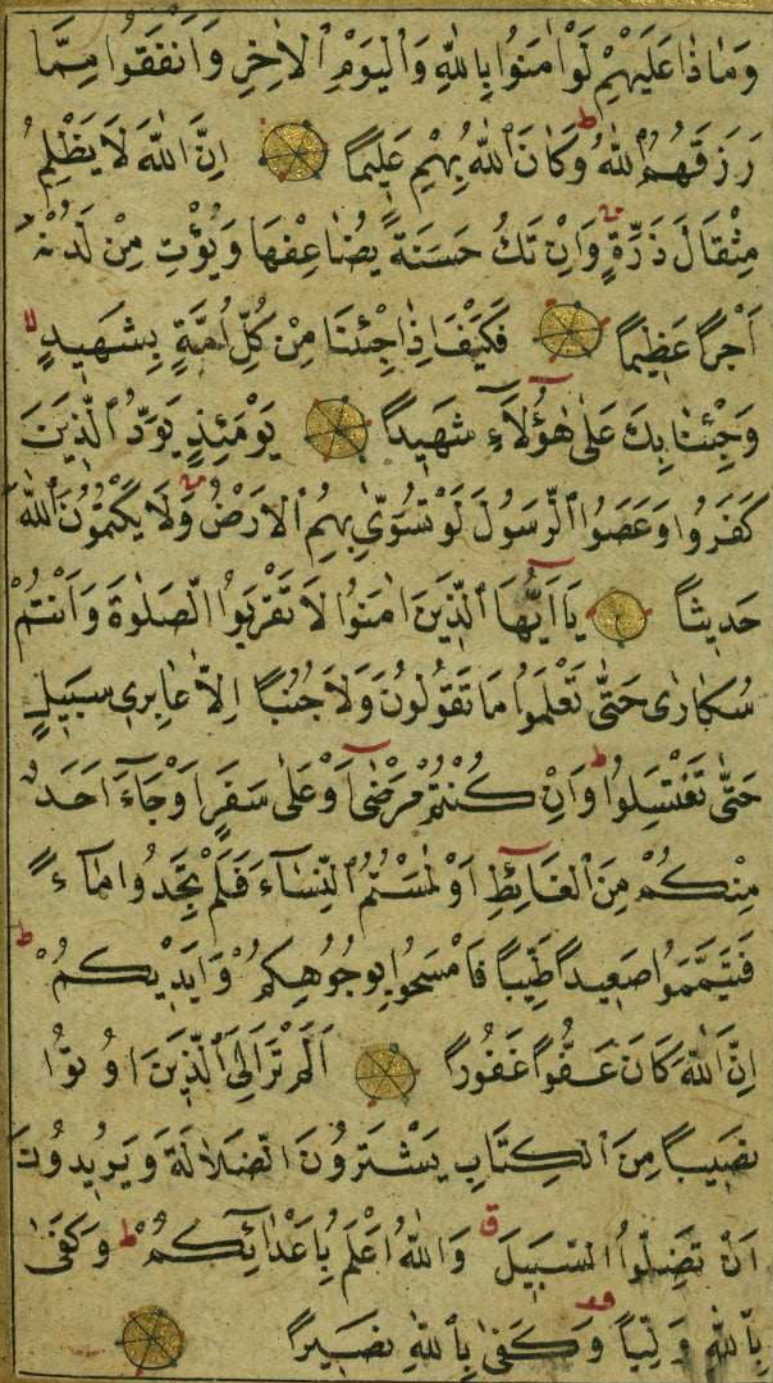 وَمَاذَا عَلَيْهِمْ لَوْ اٰمَنُوا بِاللّٰهِ وَالْيَوْمِ الْاٰخِرِ وَاَنْفَقُوا مِمَّا
رَزَقَهُمُ اللّٰهُ ط وَكَانَ اللّٰهُ بِهِمْ عَلِيمًا اِنَّ اللّٰهَ لَا يَظْلِمُ
مِثْقَالَ ذَرَّةٍ وَاِنْ تَكُ حَسَنَةً يُضَاعِفْهَا وَيُؤْتِ مِنْ لَدُنْهُ
اَجْرًا عَظِيمًا فَكَيْفَ اِذَا جِئْنَا مِنْ كُلِّ اُمَّةٍ بِشَهِيدٍ لا
وَجِئْنَا بِكَ عَلٰى هٰؤُلَاۤءِ شَهِيدًا يَوْمَئِذٍ يَوَدُّ الَّذِينَ
كَفَرُوا وَعَصَوُا الرَّسُولَ لَوْ تُسَوّٰى بِهِمُ الْاَرْضُ وَلَا يَكْتُمُونَ اللّٰهَ
حَدِيثًا يَاۤ اَيُّهَا الَّذِينَ اٰمَنُوا لَا تَقْرَبُوا الصَّلٰوةَ وَاَنْتُمْ
سُكَارٰى حَتّٰى تَعْلَمُوا مَا تَقُولُونَ وَلَا جُنُبًا اِلَّا عَابِرِي سَبِيلٍ
حَتّٰى تَغْتَسِلُوا ط وَاِنْ كُنْتُمْ مَرْضٰىۤ اَوْ عَلٰى سَفَرٍ اَوْ جَاۤءَ اَحَدٌ
مِنْكُمْ مِنَ الْغَاۤئِطِ اَوْ لٰمَسْتُمُ النِّسَاۤءَ فَلَمْ تَجِدُوا مَاۤءً
فَتَيَمَّمُوا صَعِيدًا طَيِّبًا فَامْسَحُوا بِوُجُوهِكُمْ وَاَيْدِيكُمْ ط
اِنَّ اللّٰهَ كَانَ عَفُوًّا غَفُورًا اَلَمْ تَرَ اِلَى الَّذِينَ اُوتُوا
نَصِيبًا مِنَ الْكِتَابِ يَشْتَرُونَ الضَّلَالَةَ وَيُرِيدُونَ
اَنْ تَضِلُّوا السَّبِيلَ ق وَاللّٰهُ اَعْلَمُ بِاَعْدَاۤئِكُمْ ط وَكَفٰى
بِاللّٰهِ وَلِيًّا وَكَفٰى بِاللّٰهِ نَصِيرًا